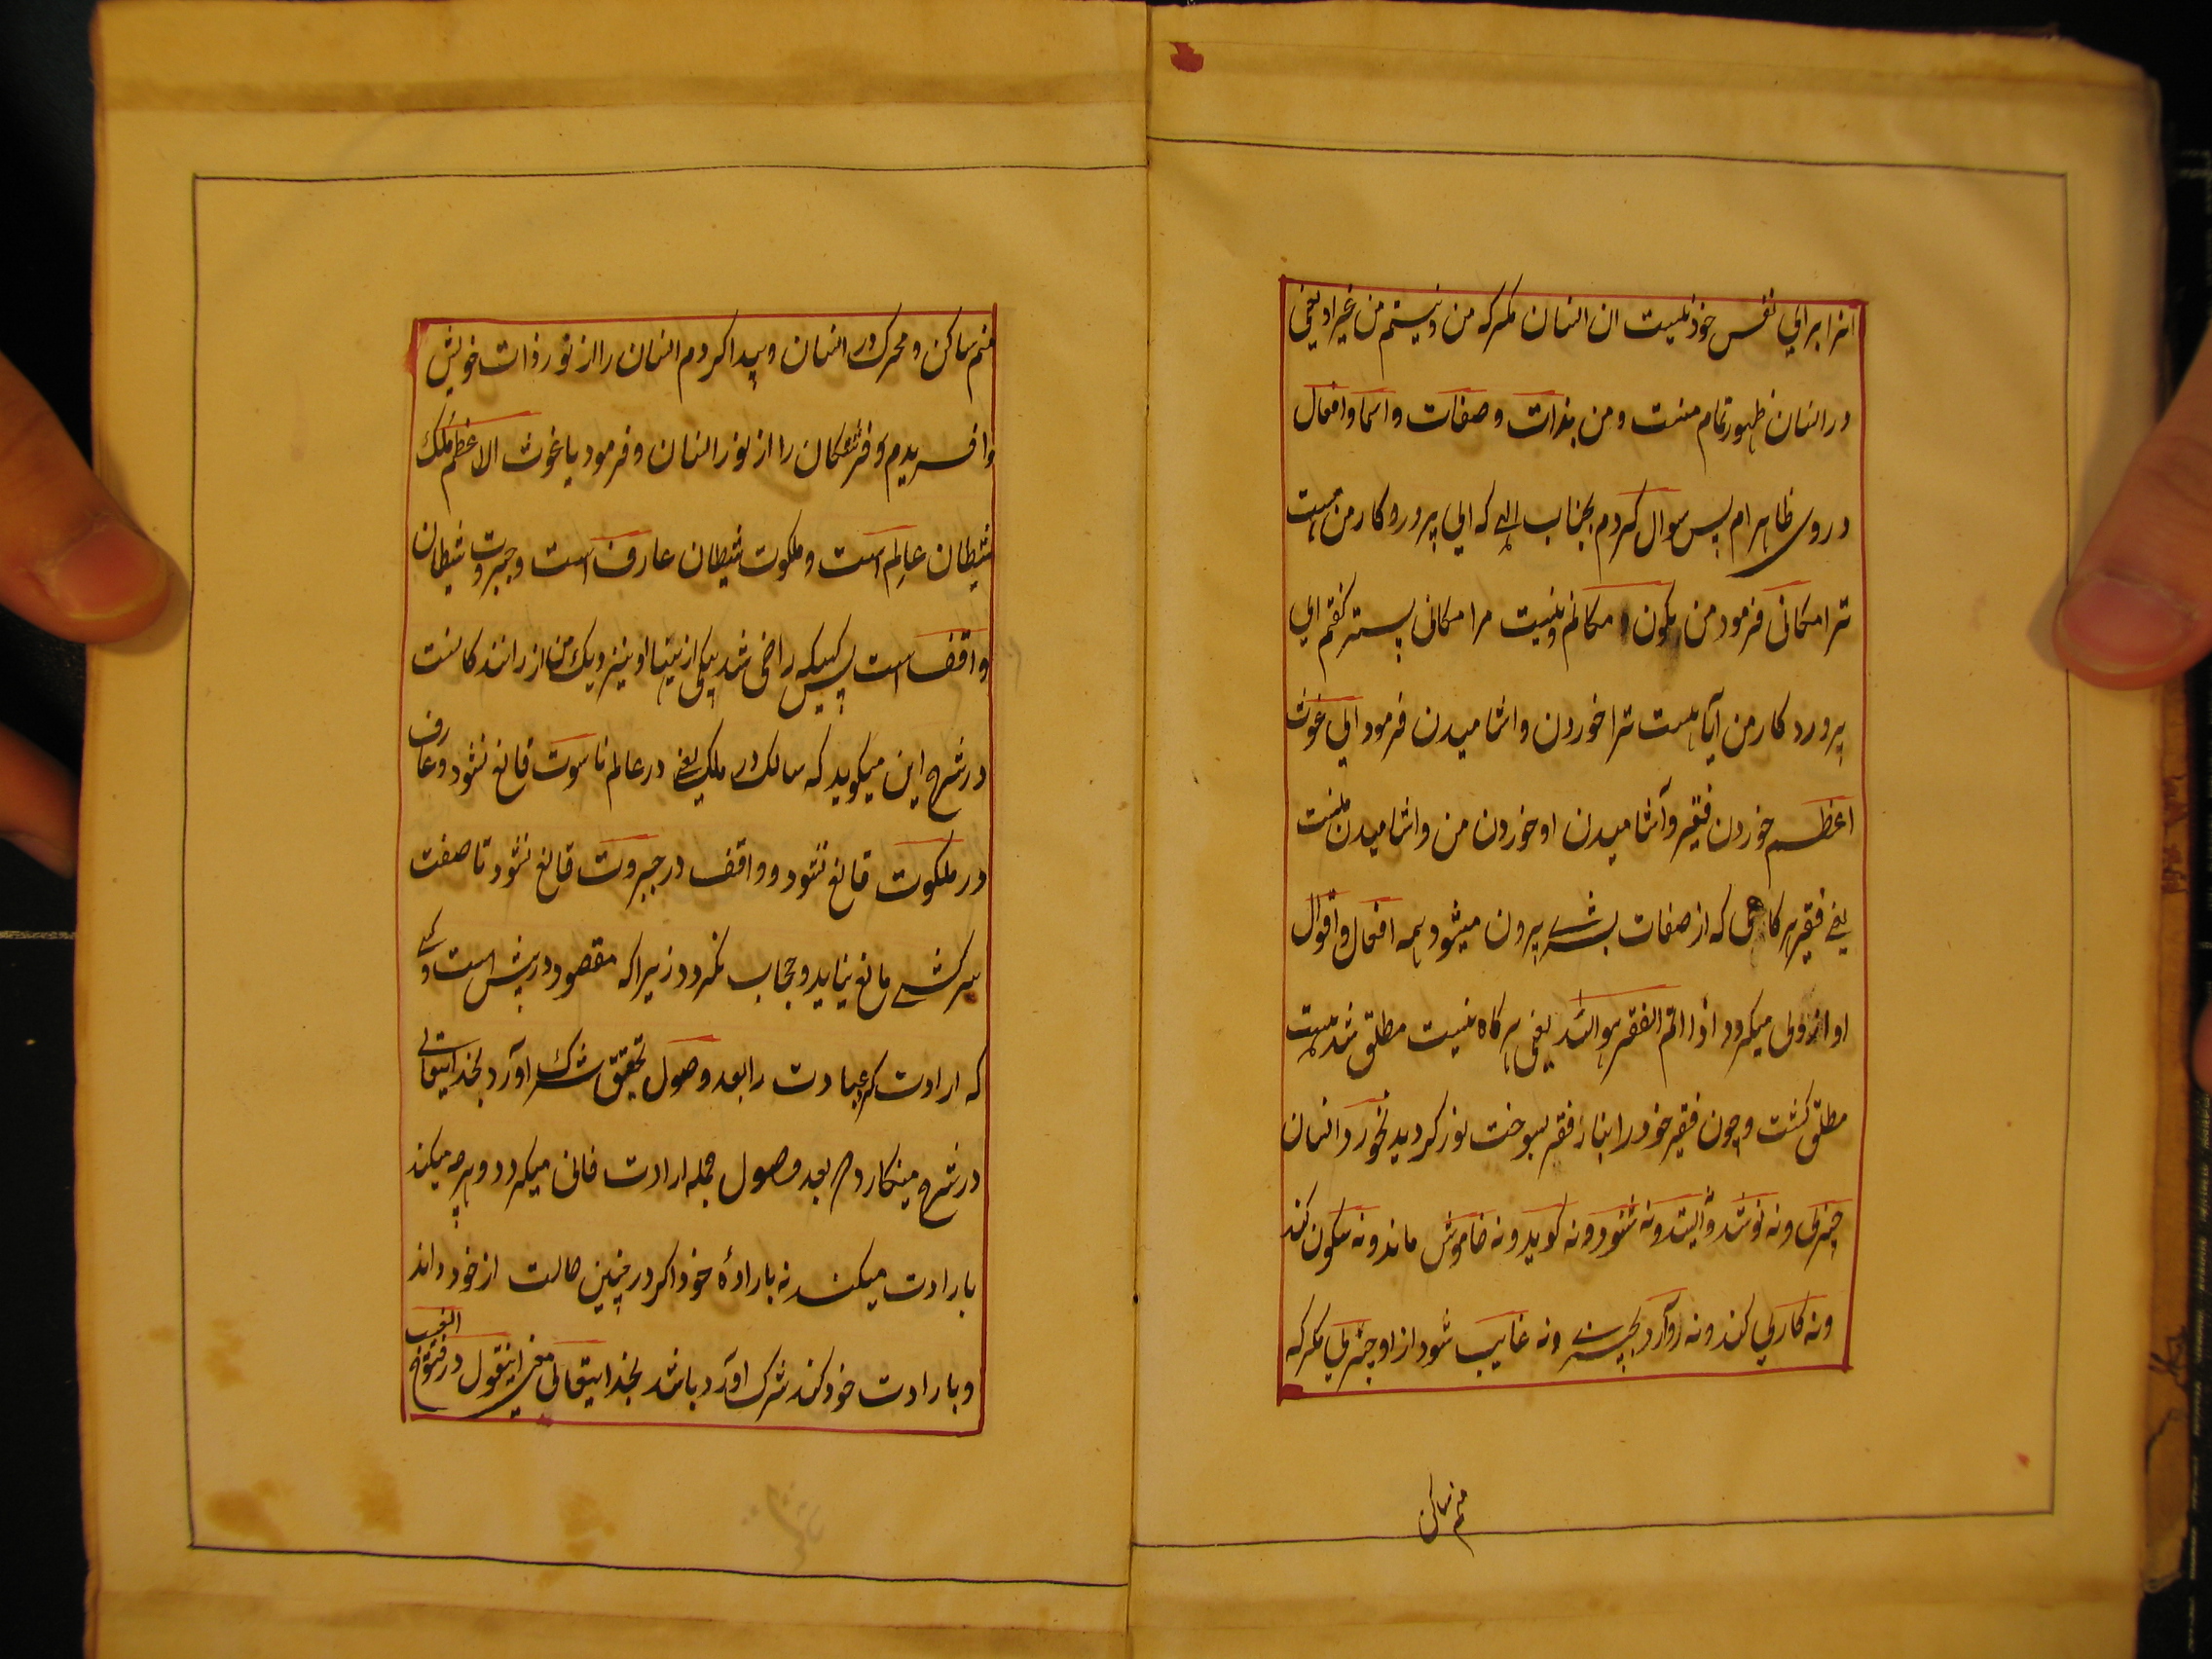 انرا برای نفس خود نیست ان انسان مکر که من ونیستم من غیر او یعنی
در انسان ظهور تمام منست و من بذات و صفات و اسما و افعال
در وی ظاهرام پس سوال کردم بجناب الهی که ای پروردکار من هست
ترا مکانی فرمود من مکون مکانم و نیست مرا مکانی پستر کفتم ای
پروردکار من آیا هست ترا خوردن واشامیدن فرمود ای غوث
اعظم خوردن فقیر وآشامیدن او خوردن من واشامیدن منست
یعنی فقیر هر کاهی که از صفات بشری بیرون میشود همه افعال و اقوال
او ازولی میکردد اذا اتم الفقر هو الله یعنی هر کاه نیست مطلق شد هست
مطلق کشت و چون فقیر خود را بنار فقر بسوخت نور کردید نخورد انسان
چیزی و نه نوشد و نه ایستد و نه شنود و نه کوید و نه خاموش ماند و نه سکون کند
و نه کاری کند و نه رو آرد بچیزی و نه غایب شود از او چیزی مکر که
منم ساکن
منم ساکن و محرک در انسان و پیدا کردم انسان را از نور ذات خویش
وافریدم فرشتکان را از نور انسان و فرمود یا غوث الاعظم ملک
شیطان عالم است و ملکوت شیطان عارف است و جبروت شیطان
واقف است پس کسیکه راضی شد بیکی از اینها او نیز نزدیک من از رانند کانست
در شرح این میکوید که سالک در ملک یعنی در عالم ناسوت قانع نشود و عارف
در ملکوت قانع نشود و واقف در جبروت قانع نشود تا صفت
سرکشی مانع نیاید و حجاب نکردد زیرا که مقصود در پیش است و کسی
که ارادت کرد عبادت را بعد وصول تحقیق شرک آورد بخدایتعالی
در شرح مینکارد که بعد وصول جمله ارادت فانی میکردد و هر چه میکند
بارادت میکند نه باراده خود اکر در چنین حالت از خود داند
و بارادت خود کند شرک آورد باشد بخدایتعالی معنی اینقول در فتوح الغیب